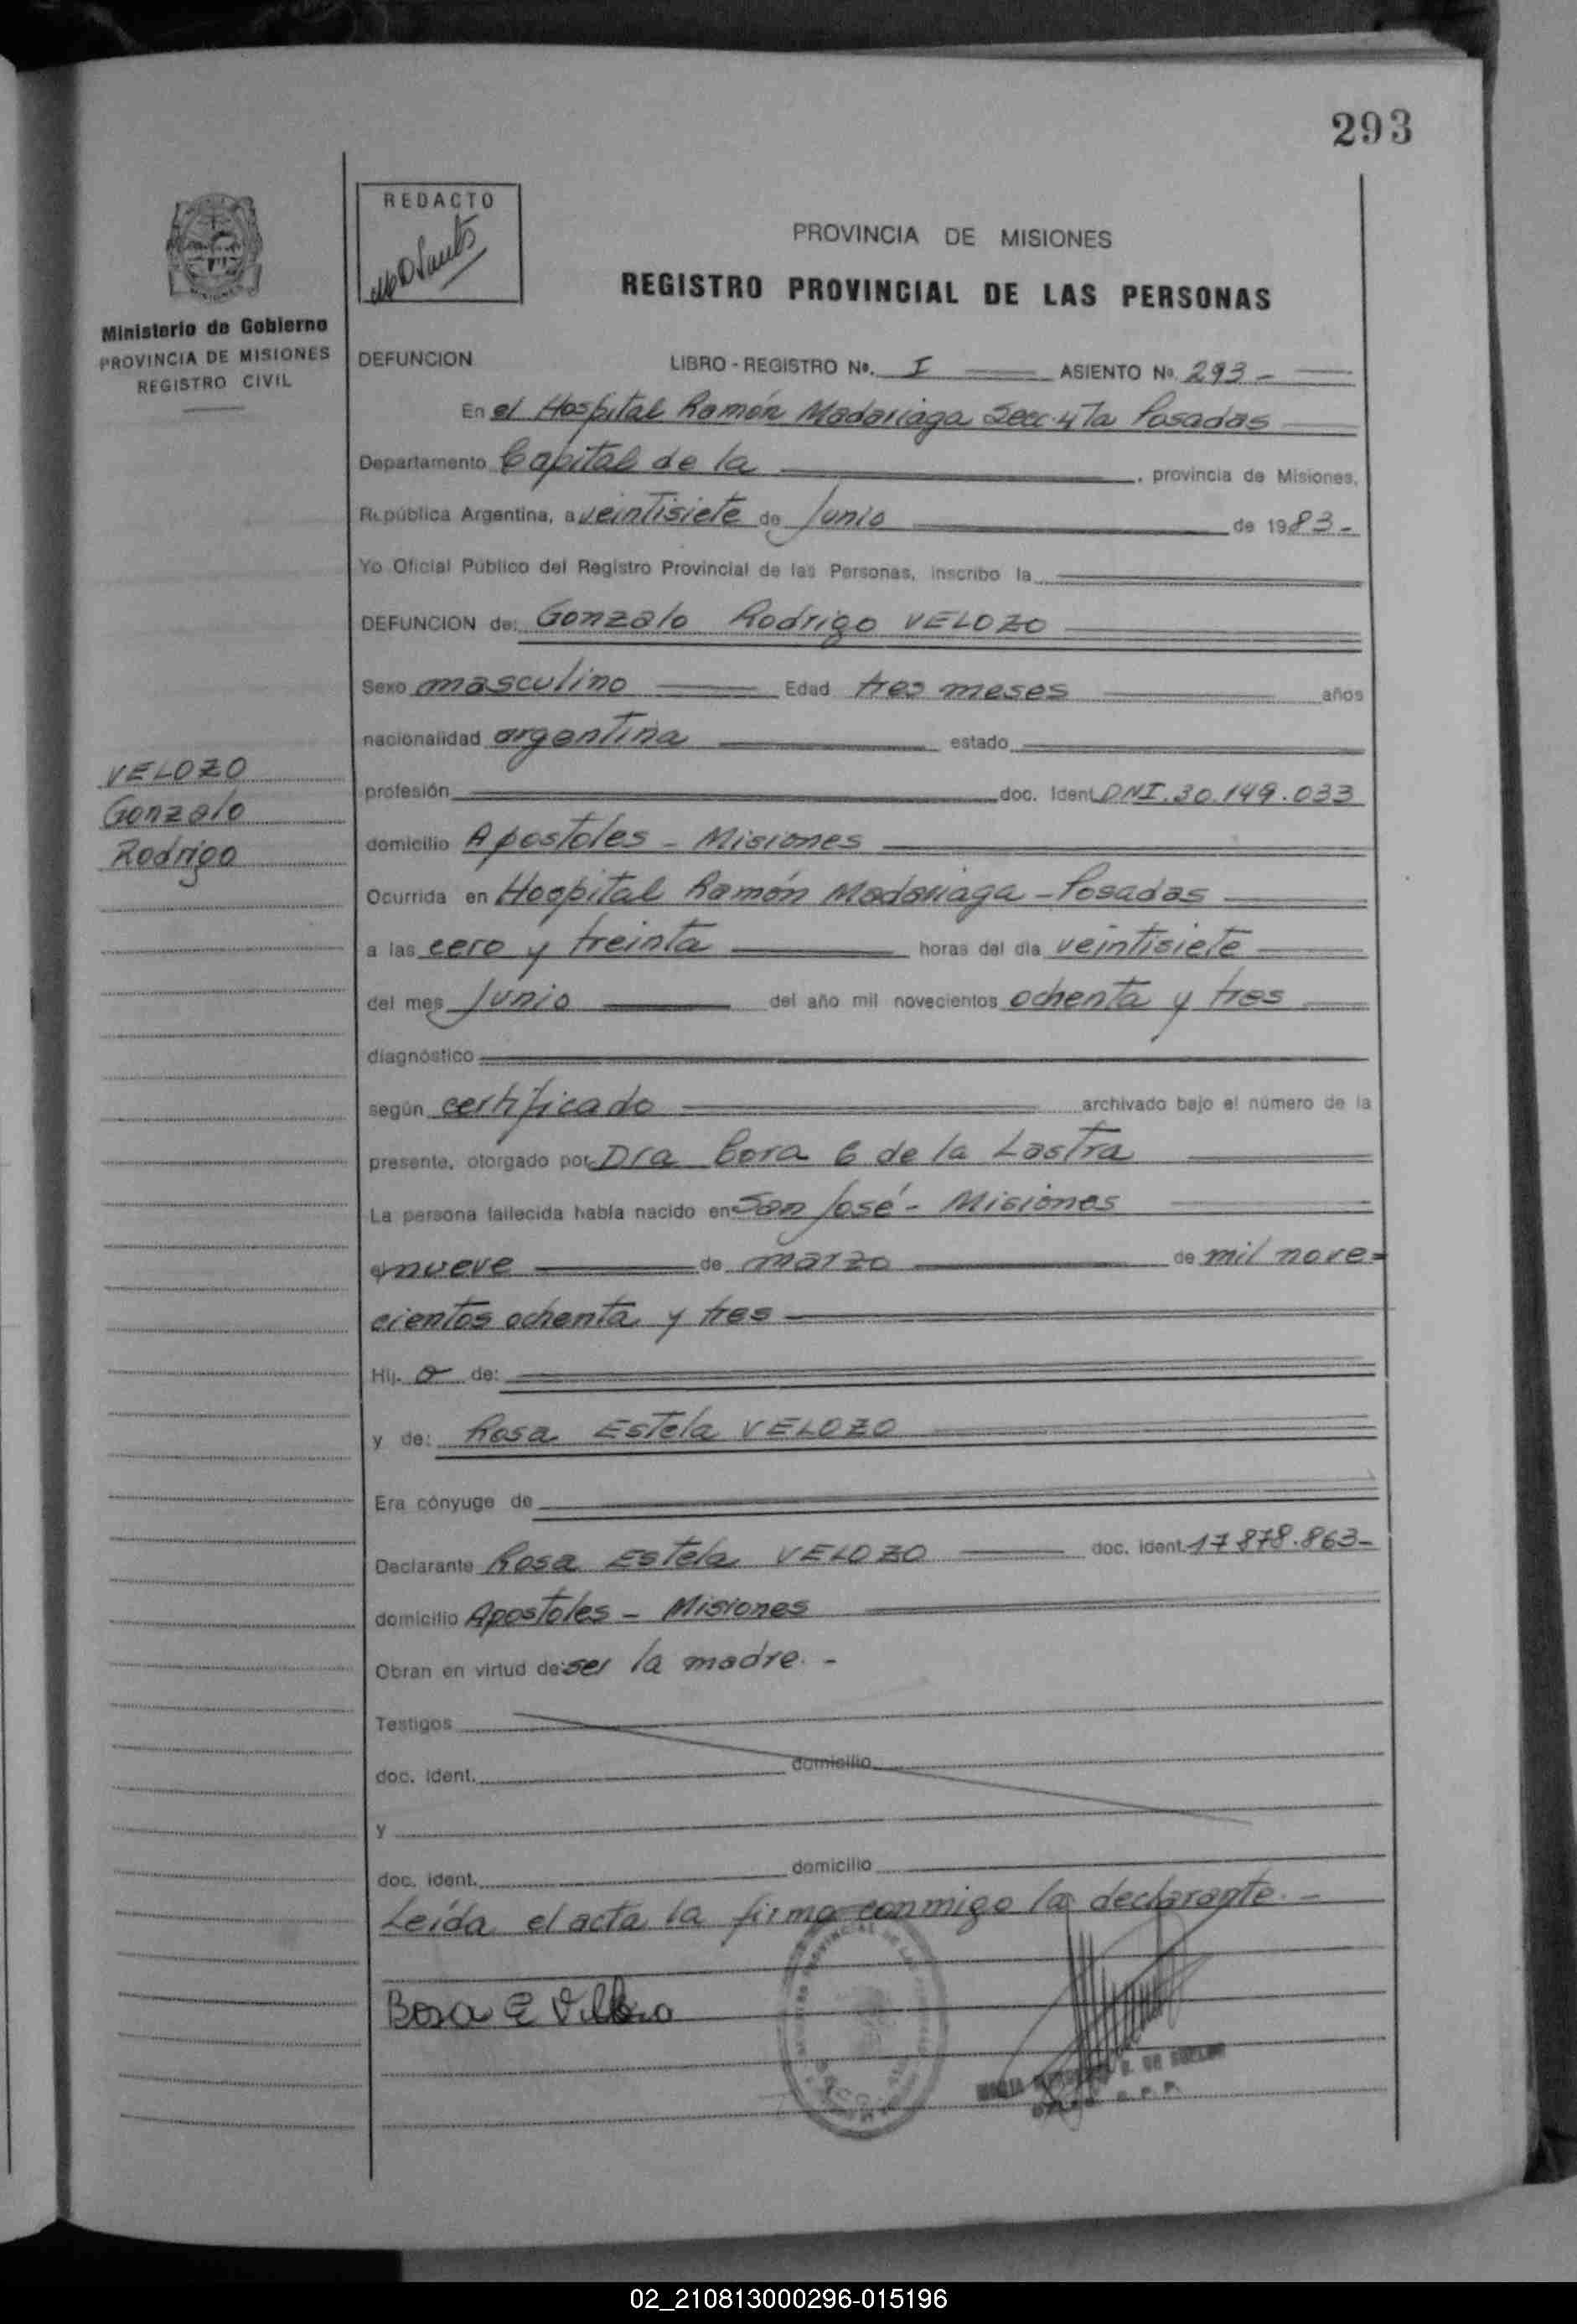 293
REDACTO
PROVINCIA DE MISIONES
REGISTRO PROVINCIAL DE LAS PERSONAS
Ministerio de Gobierno
PROVINCIA DE MISIONES
REGISTRO CIVIL
DEFUNCION LIBRO - REGISTRO Nº. I ASIENTO Nº 293 -
En el Hospital Ramón Madariaga Secc. 4Ta Posadas
Departamento Capital de la , provincia de Misiones,
República Argentina, a veintisiete de Junio de 1983 -
Yo Oficial Público del Registro Provincial de las Personas, inscribo la
DEFUNCION de: Gonzalo Rodrigo VELOZO
Sexo masculino Edad tres meses años
nacionalidad argentina estado
profesión doc. Ident DNI. 30.149.033
domicilio Apostoles - Misiones
Ocurrida en Hospital Ramón Madariaga - Posadas
a las cero y treinta horas del día veintisiete
del mes Junio del año mil novecientos ochenta y tres
diagnóstico
según certificado archivado bajo el número de la
presente, otorgado por Dra Cora C de la Lastra
La persona fallecida había nacido en San José - Misiones
el nueve de marzo de mil nove=
cientos ochenta y tres
Hij. o de:
y de: Rosa Estela VELOZO
Era cónyuge de
Declarante Rosa Estela VELOZO doc. ident. 17 878.863-
domicilio Apostoles - Misiones
Obran en virtud de ser la madre. -
Testigos
doc. Ident. domicilio
y
doc. ident. domicilio
Leída el acta la firma conmigo la declarante. -
VELOZO
Gonzalo
Rodrigo
02_210813000296-015196